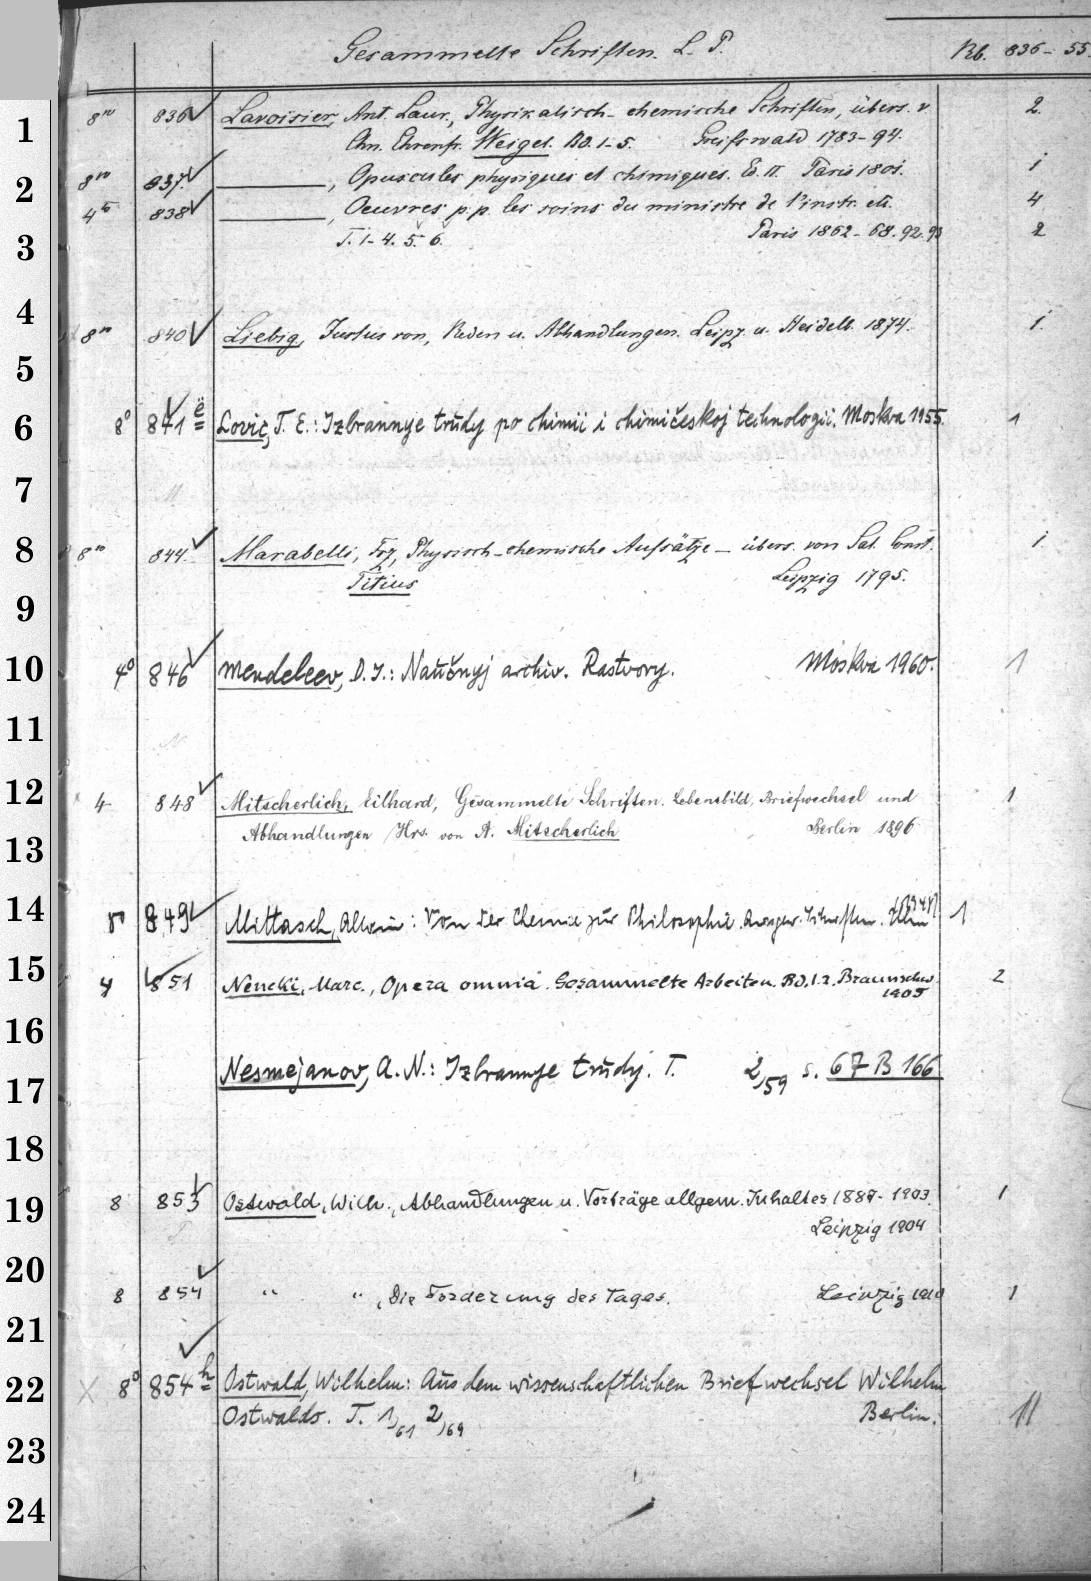 Gesammelte Schriften. L. P. Rb. 836-55.
1 8vo 836 Lavoisier, Ant. Laur., Physikalisch-chemische Schriften, übers. v. 2.
Chn. Ehrenfr. Weigel. Bd. 1-5. Greifswald 1783-94.
2 8vo 837. ———, Opuscules physiques et chimiques. Ed. II. Paris 1801. 1
4to 838 ———, Oeuvres p.p. les soins du ministre de l'instr. etc. 4
3 T. 1-4. 5. 6. Paris 1862-68. 92. 93 2
4 8vo 840 Liebig, Justus von, Reden u. Abhandlungen. Leipz. u. Heidelb. 1874. 1.
5
6 8° 841 e Lovic, T. E.: Izbrannye trudy po chimii i chimičeskoj technologii. Moskva 1955. 1
7
8 8vo 844. Marabelli, Frz, Physisch-chemische Aufsätze – übers. von Sal. Const. 1
Titius Leipzig 1795.
9
10 4° 846 Mendeleev, D. I.: Naučnyj archiv. Rastvory. Moskva 1960. 1
11
12 4 848 Mitscherlich, Eilhard, Gesammelte Schriften. Lebensbild, Briefwechsel und 1
Abhandlungen / Hrs. von A. Mitscherlich Berlin 1896
13
14 849 Mittasch, Alwin: Von der Chemie zur Philosophie. Ausgew. Schriften. Ulm 1
15 4 851 Nencki, Marc., Opera omnia. Gesammelte Arbeiten. Bd. 1.2. Braunschw. 2
1905
16
Nesmejanov, A. N.: Izbrannye trudy. T. 2/59 s. 67 B 166
17
18
19 8 853 Ostwald, Wilh., Abhandlungen u. Vorträge allgem. Inhaltes 1887-1903. 1
Leipzig 1904
20 8 854 " ", Die Forderung des Tages. Leipzig 1910 1
21
22 X 8° 854 h Ostwald, Wilhelm: Aus dem wissenschaftlichen Briefwechsel Wilhelm
Ostwalds. T. 1/61 2/69 Berlin. 11
23
24